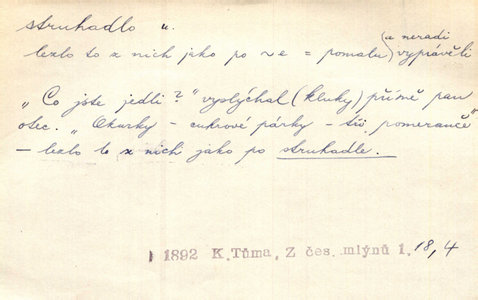 struhadlo n.
lezlo to z nich jako po ~e = pomalu (a neradi) vyprávěli
„Co jste jedli?" vyslýchal (kluky) přímě pan
otec. „Okurky – cukrové párky – tři pomeranče"
– lezlo to z nich jako po struhadle.
1892 K. Tůma, Z čes. mlýnů 1, 18, 4